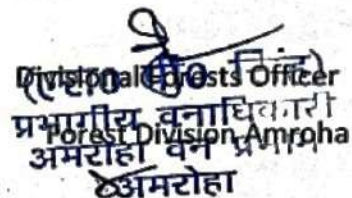 Divisional Forests Officer
सिंह)
प्रभागीय वनाधिकारी
Forest Division Amroha
अमरोहा वन प्रभाग
अमरोहा